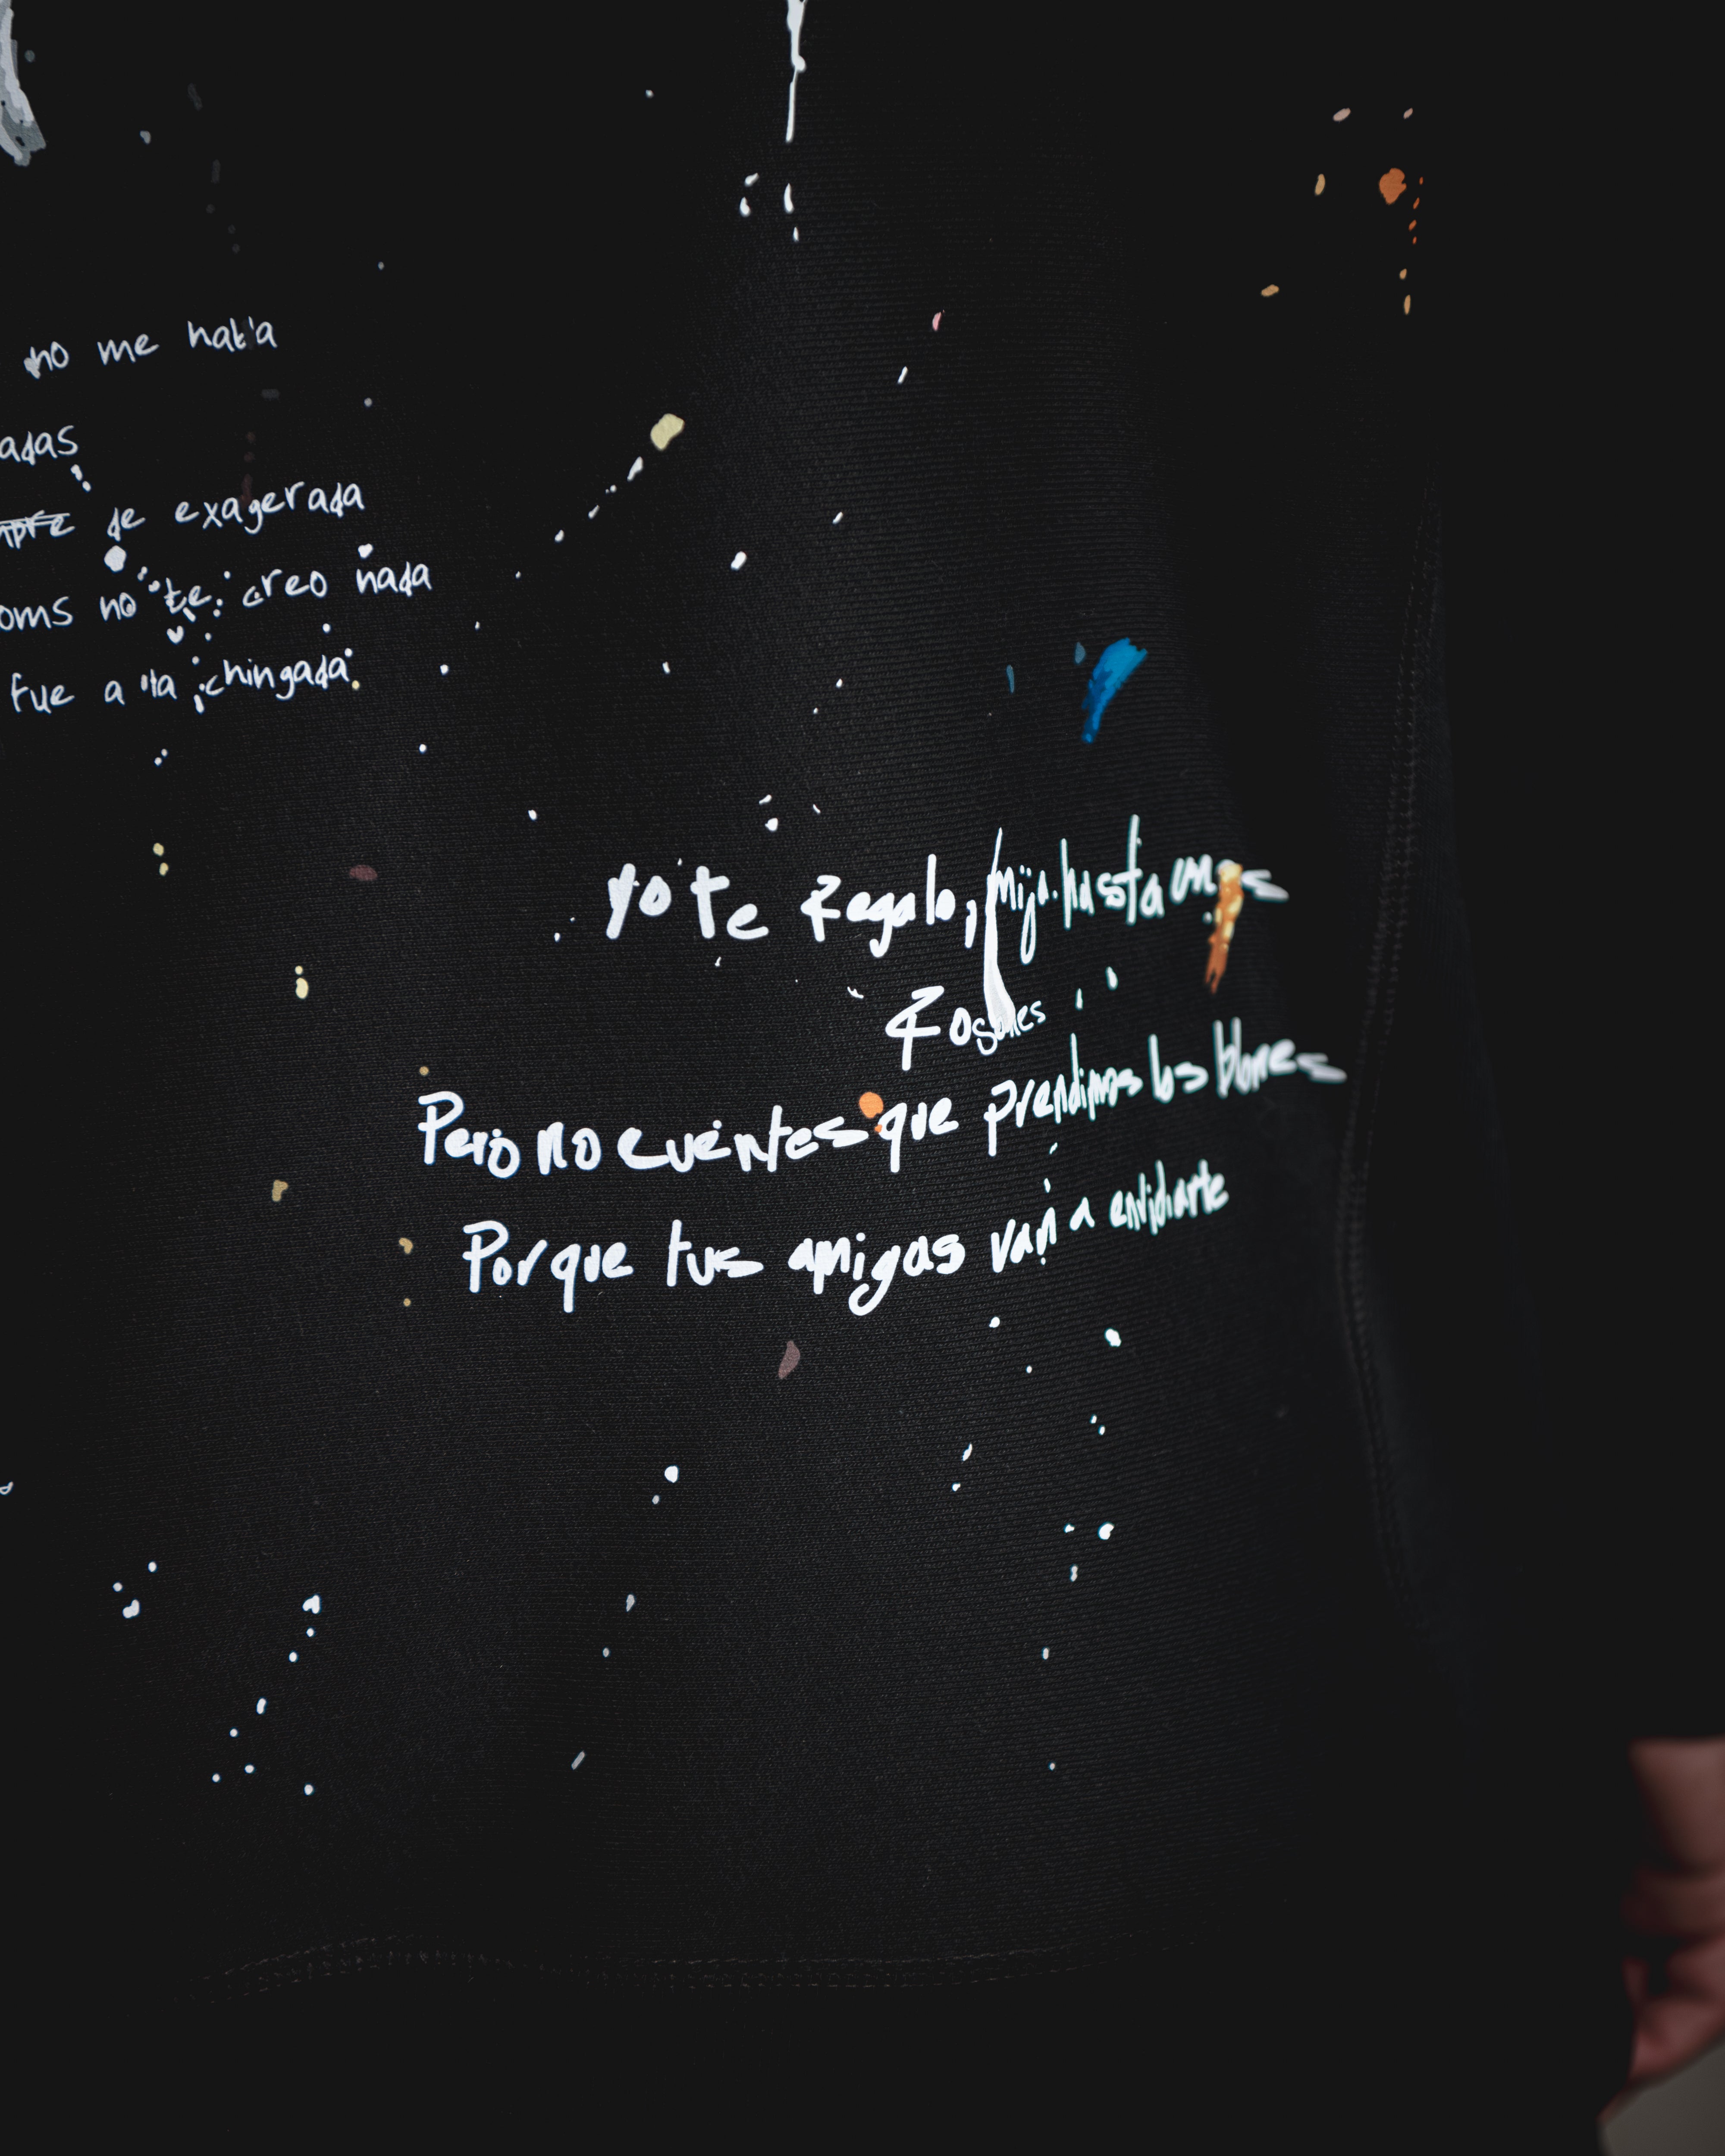 no me habla
adas
de exagerada
oms no te creo nada
fue a la chingada
yo te Regalo, mija. hasta unos
Rosales
Pero no cuentes que prendimos los blones
Porque tus amigas van a envidiarte